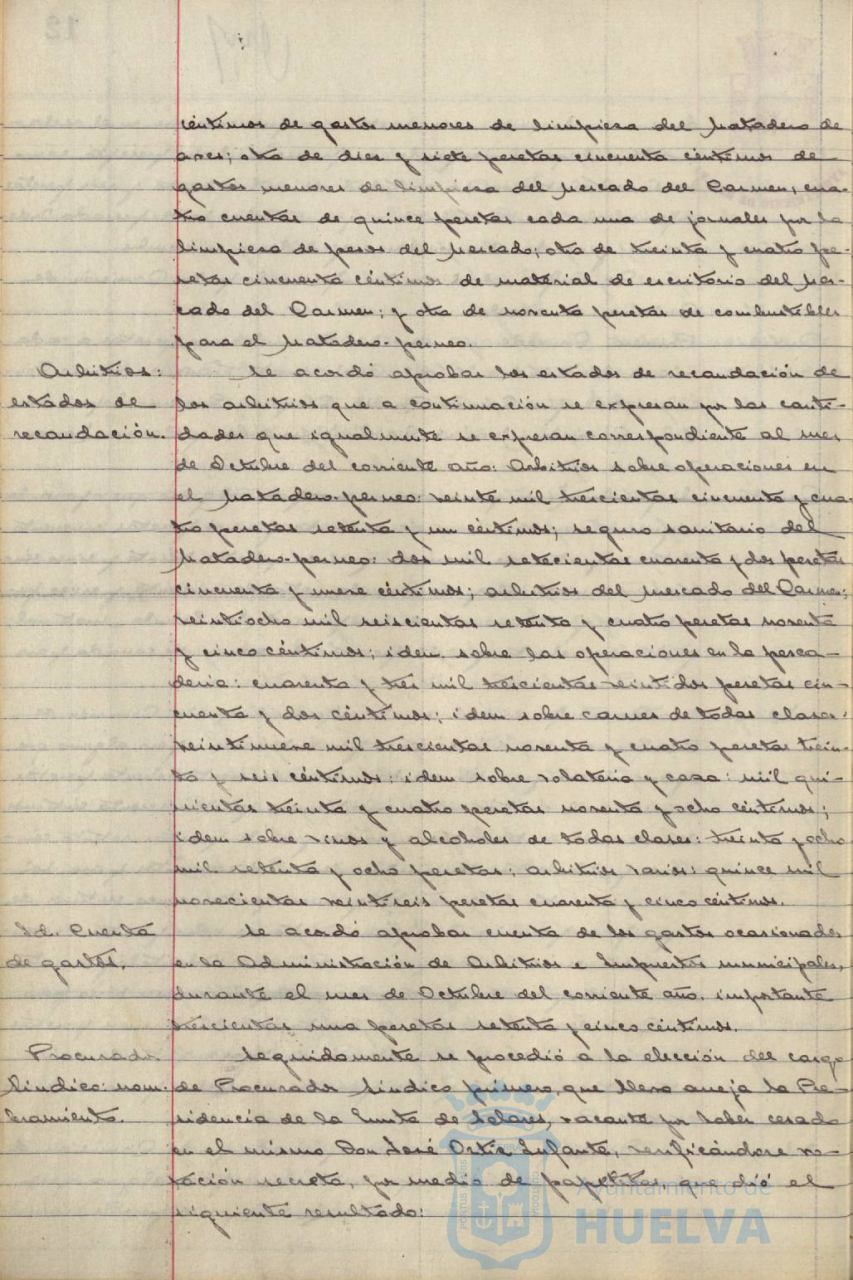 céntimos de gastos menores de limpiesa del Matadero de
aves; otra de dies y siete pesetas cincuenta céntimos de
gastos menores de limpiesa del Mercado del Carmen; cua-
tro cuentas de quince pesetas cada una de jornales por la
limpiesa de pesos del Mercado; otra de treinta y cuatro pe-
setas cincuenta céntimos de material de escritorio del Mer-
cado del Carmen; y otra de noventa pesetas de combustibles
para el Matadero-perneo.
Arbitrios:
estados de
recaudación.
Se acordó aprobar los estados de recaudación de
los arbitrios que a continuación se expresan por las canti-
dades que igualmente se expresan correspondiente al mes
de Octubre del corriente año: Arbitrios sobre operaciones en
el Matadero-perneo: veinte mil trescientas cincuenta y cua-
tro pesetas setenta y un céntimos; seguro sanitario del
Matadero-perneo: dos mil setecientas cuarenta y dos pesetas
cincuenta y nueve céntimos; arbitrios del Mercado del Carmen;
veintiocho mil seiscientas setenta y cuatro pesetas noventa
y cinco céntimos; idem sobre las operaciones en la pesca-
deria: cuarenta y tres mil trescientas veintidos pesetas cin-
cuenta y dos céntimos; idem sobre carnes de todas clases:
veintinueve mil trescientas noventa y cuatro pesetas trein-
ta y seis céntimos; idem sobre volateria y casa: mil qui-
nientas treinta y cuatro pesetas noventa y ocho céntimos;
idem sobre vinos y alcoholes de todas clases: treinta y ocho
mil setenta y ocho pesetas; arbitrios varios: quince mil
novecientas veintiseis pesetas cuarenta y cinco céntimos.
Id. Cuenta
de gastos.
Se acordó aprobar cuenta de los gastos ocasionados
en la Administración de Arbitrios e Impuestos municipales,
durante el mes de Octubre del corriente año, importante
trescientas una pesetas setenta y cinco céntimos.
Procurador
Síndico: nom-
bramiento.
Seguidamente se procedió a la elección del cargo
de Procurador Síndico primero, que lleva aneja la Pre-
sidencia de la Junta de Solares, vacante por haber cesado
en el mismo Don José Ortiz Infante, verificándose vo-
tación secreta, por medio de papeletas, que dió el
siguiente resultado:
Ayuntamiento de
HUELVA